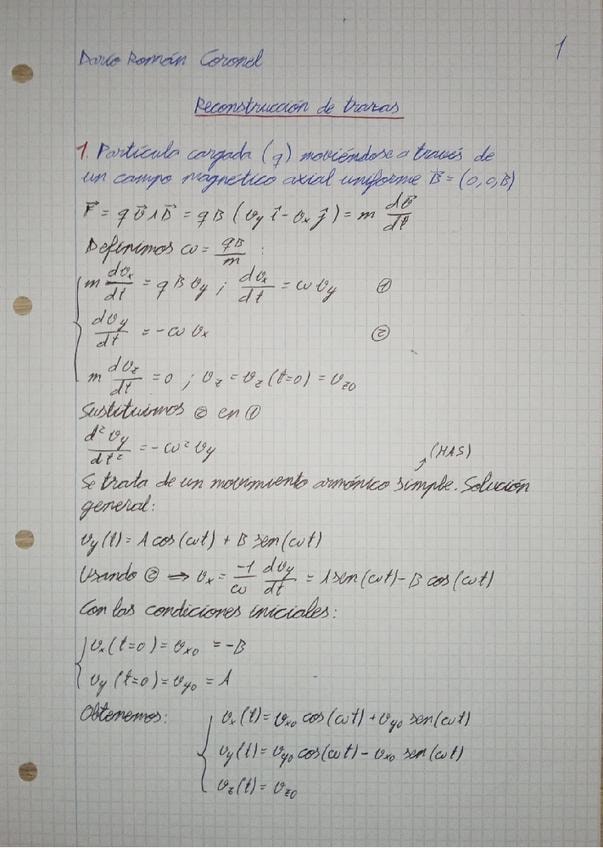 Darío Román Coronel
1
Reconstrucción de trazas
1. Partícula cargada (q) moviéndose a través de
un campo magnético axial uniforme B⃗ = (0,0,B)
F⃗ = q v⃗ ∧ B⃗ = qB (v_y i⃗ - v_x j⃗) = m dv⃗/dt
Definimos ω = qB/m :
m dv_x/dt = q B v_y ; dv_x/dt = ω v_y ①
dv_y/dt = -ω v_x ②
m dv_z/dt = 0 ; v_z = v_z (t=0) = v_z0
Sustituimos ② en ①
d²v_y/dt² = -ω² v_y
(HAS)
Se trata de un movimiento armónico simple. Solución
general:
v_y(t) = A cos(ωt) + B sen(ωt)
Usando ② ⇒ v_x = -1/ω dv_y/dt = A sen(ωt) - B cos(ωt)
Con las condiciones iniciales:
v_x(t=0) = v_x0 = -B
v_y(t=0) = v_y0 = A
Obtenemos: v_x(t) = v_x0 cos(ωt) + v_y0 sen(ωt)
v_y(t) = v_y0 cos(ωt) - v_x0 sen(ωt)
v_z(t) = v_z0